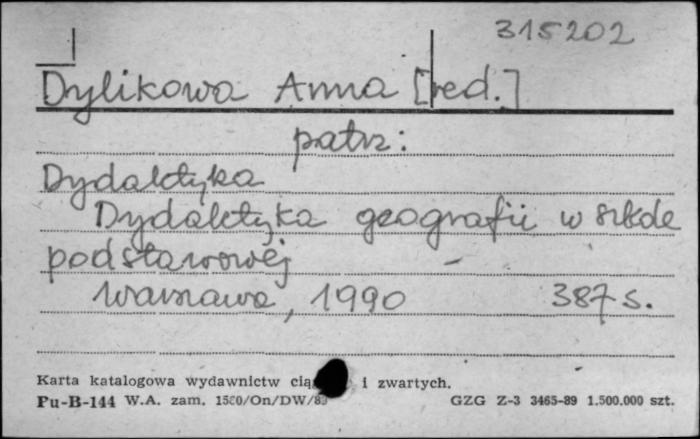 315202
Dylikowa Anna [red.]
patrz:
Dydaktyka
Dydaktyka geografii w szkole
podstawowej -
Warszawa, 1990 387 s.
Karta katalogowa wydawnictw i zwartych.
Pu-B-144 W.A. zam. 1580/On/DW/89 GZG Z-3 3465-89 1.500.000 szt.